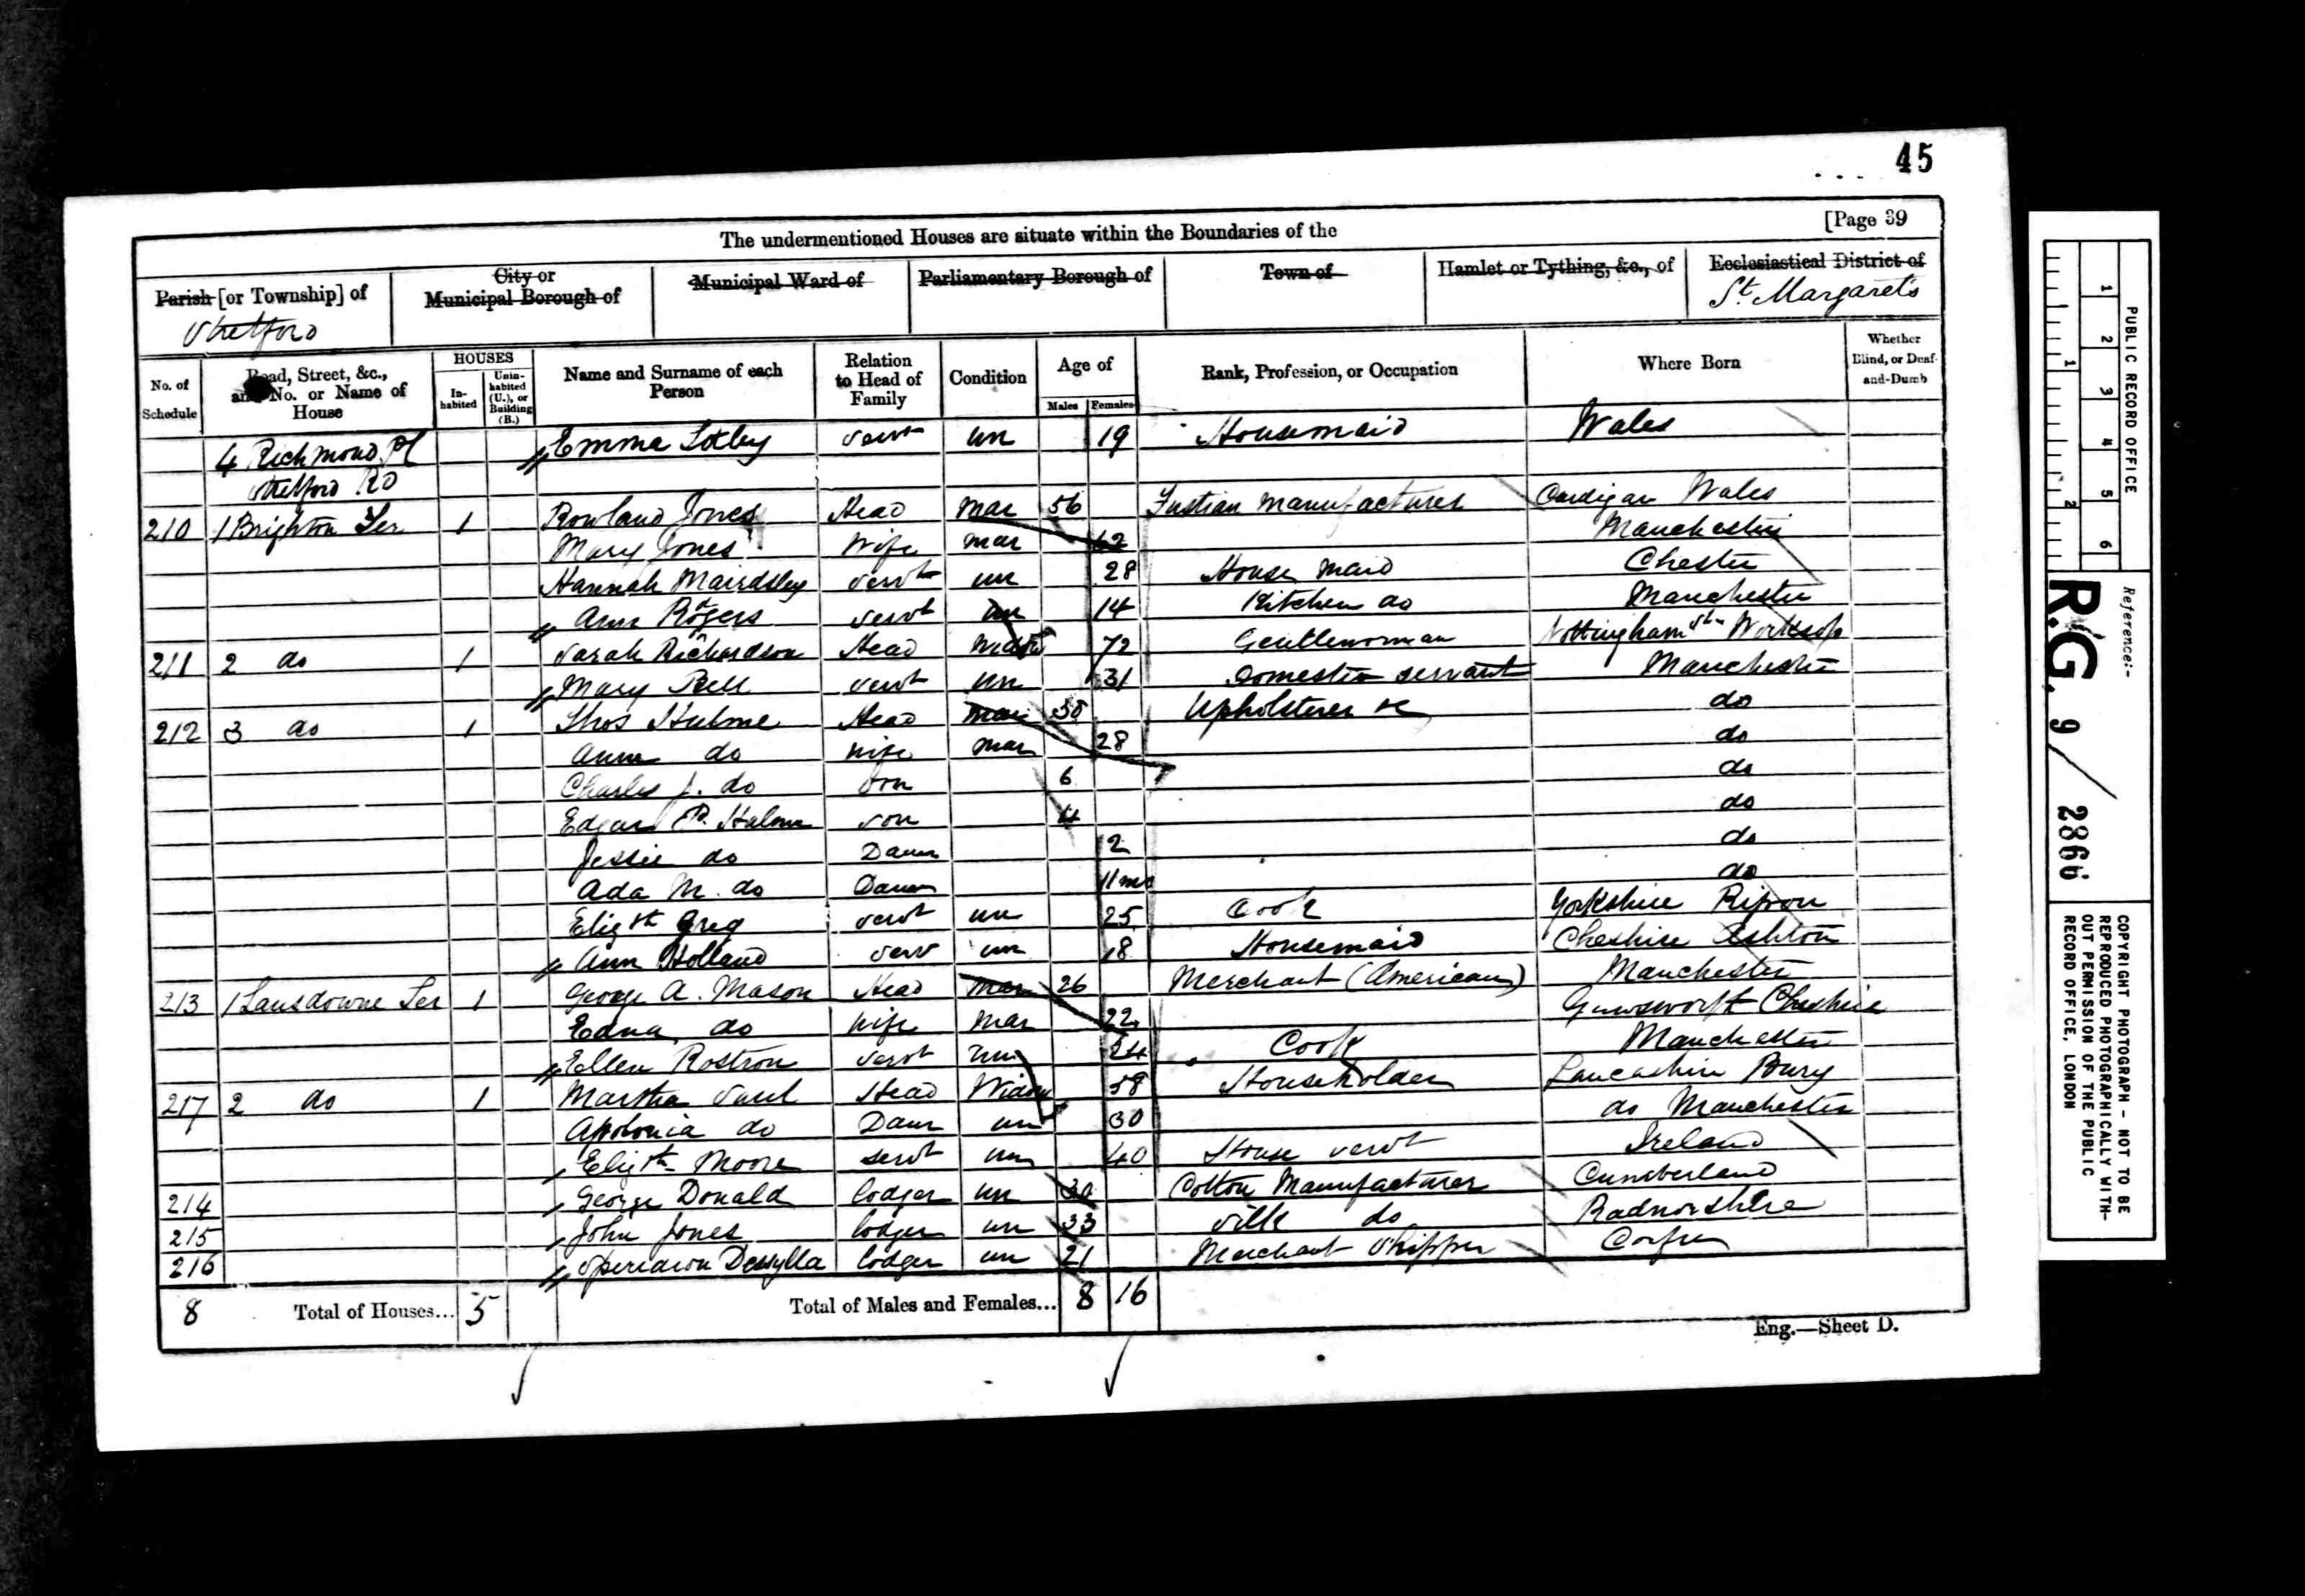 45
[Page 39
The undermentioned Houses are situate within the Boundaries of the
Parish [or Township] of
Stretford
City or
Municipal Borough of
Municipal Ward of
Parliamentary Borough of
Town of
Hamlet or Tything, &c., of
Ecclesiastical District of
St. Margaret's
No. of Schedule
Road, Street, &c., and No. or Name of House
HOUSES
In-habited
Unin-habited (U.), or Building (B.)
Name and Surname of each Person
Relation to Head of Family
Condition
Age of
Males
Females
Rank, Profession, or Occupation
Where Born
Whether Blind, or Deaf-and-Dumb
4 Richmond Pl Emma Servt Un 19 Housemaid Wales
Stretford Rd
210 1 Brighton Ter 1 Rowland Jones Head Mar 56 Fustian Manufacturer Cardigan Wales
Mary Jones Wife Mar 62 Manchester
Hannah Servt Un 28 House Maid Chester
Ann Rogers Servt Un 14 Kitchen do Manchester
211 2 do 1 Sarah Richardson Head Widow 72 Gentlewoman Nottingham Worksop
Mary Bell Servt Un 31 Domestic Servant Manchester
212 3 do 1 Thos Hulme Head Mar Upholsterer &c do
Anne do Wife Mar 28 do
Charles J. do Son 6 do
Edgar P. Hulme Son 4 do
Jessie do Daur 2 do
Ada M. do Daur 11 mo do
Elizth Greg Servt Un 25 Cook Yorkshire Ripon
Ann Holland Serv Un 18 Housemaid Cheshire Ashton
213 1 Lansdowne Ter 1 George A. Mason Head Mar 26 Merchant (American) Manchester
Edna do Wife Mar 22 Cheshire
Ellen Rostron Servt Un 24 Cook Manchester
217 2 do 1 Martha Head Widow 58 Householder Lancashire Bury
Apolonia do Daur Un 30 do Manchester
Elizth Moore Servt Un 40 House Servt Ireland
214 George Donald Lodger Un 30 Cotton Manufacturer Cumberland
215 John Jones Lodger Un 33 Silk do Radnorshire
216 Lodger Un 21 Merchant Shipper Corfu
8 Total of Houses... 5 Total of Males and Females... 8 16
Eng.—Sheet D.
1 2 3 4 5 6
1 2
PUBLIC RECORD OFFICE
Reference:-
R.G. 9/2866
COPYRIGHT PHOTOGRAPH - NOT TO BE
REPRODUCED PHOTOGRAPHICALLY WITH-
OUT PERMISSION OF THE PUBLIC
RECORD OFFICE, LONDON